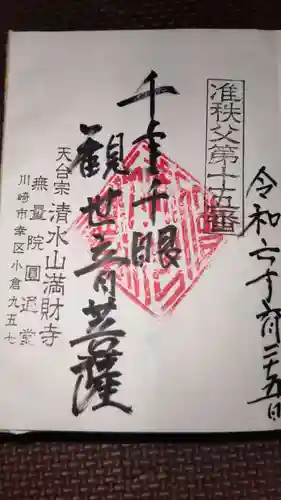 令和六年 二十五日
准秩父第十五番
千手千眼
観世音菩薩
天台宗 清水山満財寺
無量院圓通堂
川崎市幸区小倉九五七